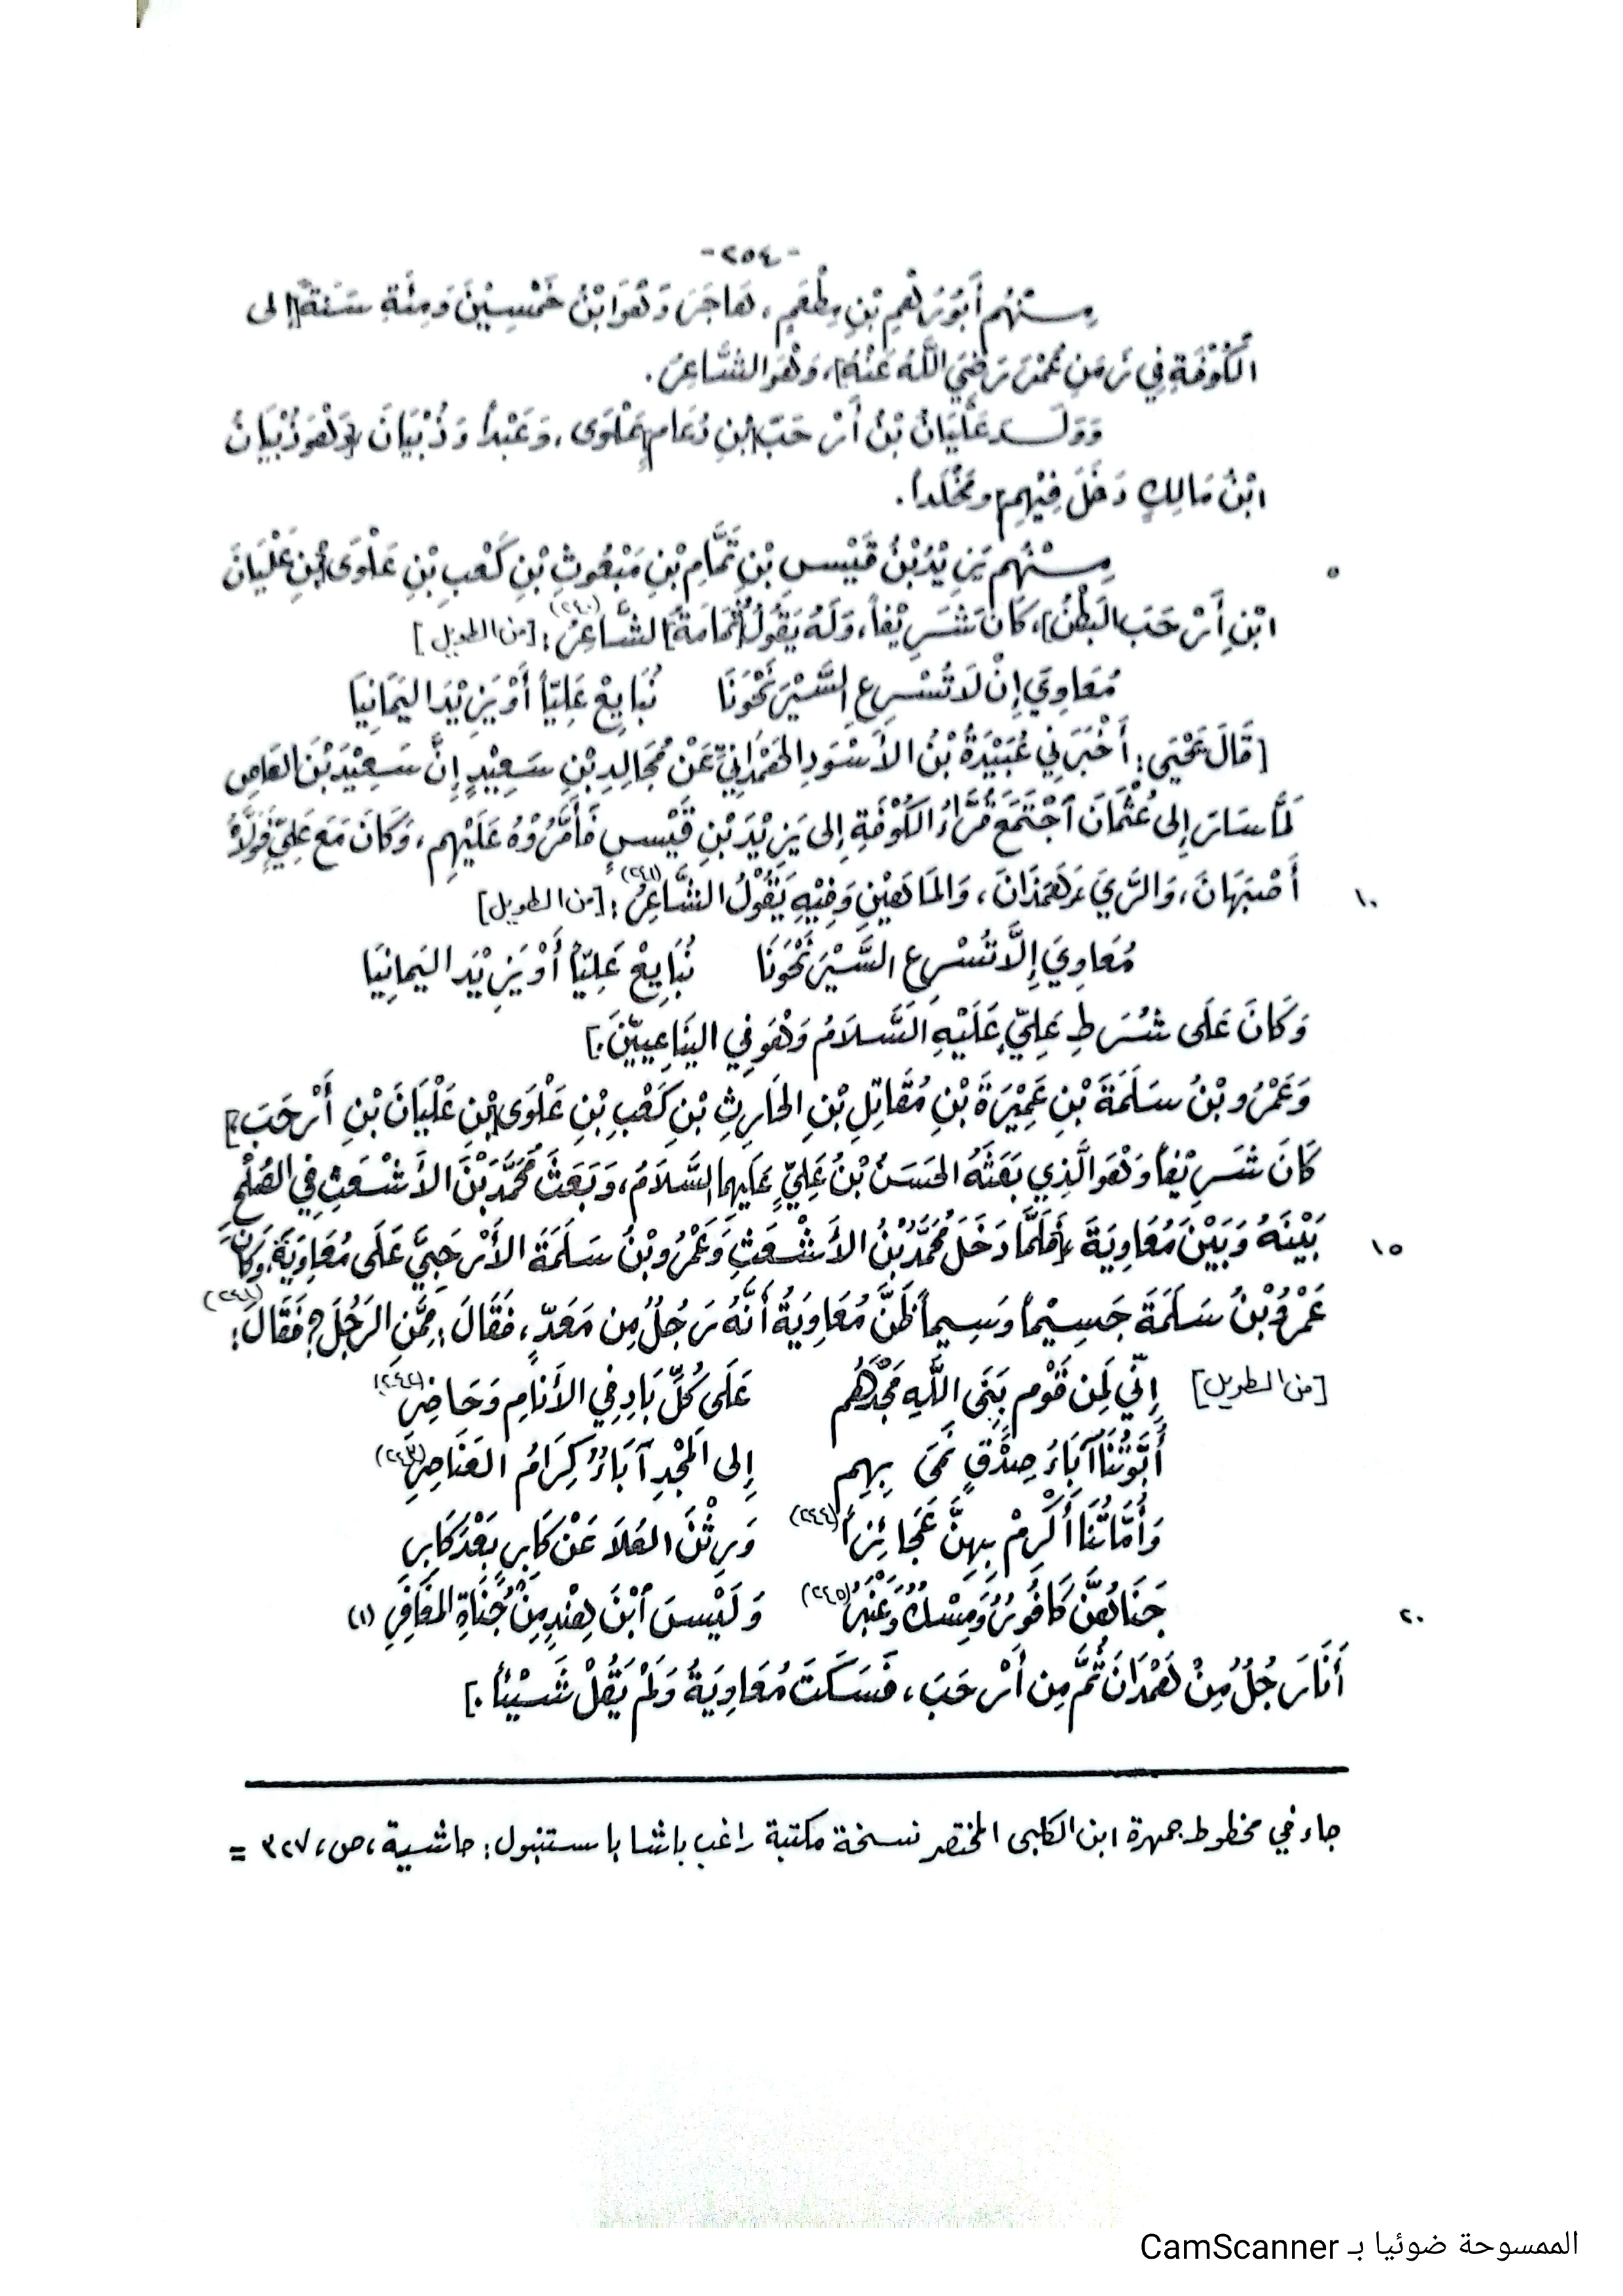 -٢٥٤-
مِنْهُم أَبُو رُهْمِ بْنِ مِطْعَمٍ، هَاجَرَ وَهْوَ ابْنُ خَمْسِيْنَ وَمِئَةِ سَنَةٍ [إلى
الْكُوْفَةِ فِي زَمَنِ عُمَرَ رَضِيَ اللَّهُ عَنْهُ]، وَهْوَ الشَّاعِرُ.
وَوَلَدَ عَلْيَانُ بْنُ أَرْحَبَ [بْنِ دُعَامٍ] عَلْوَى، وَعَبْداً وَذُبْيَانَ [وَهْوَ ذُبْيَانُ
ابْنُ مَالِكٍ دَخَلَ فِيْهِم] ومَخْلَداً.
٥ مِنْهُم يَزِيْدُ بْنُ قَيْسِ بْنِ تَمَّامِ بْنِ مَبْعُوثِ بْنِ كَعْبِ بْنِ عَلْوَى [بْنِ عَلْيَانَ
ابْنِ أَرْحَبَ البَطْنُ]، كَانَ شَرِيْفاً، وَلَهُ يَقُولُ [ثُمَامَةُ] الشَّاعِرُ (٢٤٠): [من الطويل]
مُعَاوِيَ إِنْ لَا تُسْرِعِ السَّيْرَ نَحْوَنَا نُبَايِعْ عَلِيّاً أَوْ يَزِيْدَ اليَمَانِيَا
[قَالَ يَحْيَى: أَخْبَرَنِي عُبَيْدَةُ بْنُ الأَسْوَدِ الهَمْدَانِيُّ عَنْ مُجَالِدِ بْنِ سَعِيْدٍ إِنَّ سَعِيْدَ بْنَ العَاصِ
لَمَّا سَارَ إِلى عُثْمَانَ آجْتَمَعَ قُرَّاءُ الكُوْفَةِ إِلى يَزِيْدَ بْنِ قَيْسٍ فَأَمَّرُوْهُ عَلَيْهِم، وَكَانَ مَعَ عَلِيٍّ فَوَلَّاهُ
١٠ أَصْبَهَانَ، وَالرَّيَّ وَهَمَذَانَ، وَالمَاهَيْنِ وَفِيْهِ يَقُوْلُ الشَّاعِرُ (٢٤١): [من الطويل]
مُعَاوِيَ إِلَّا تُسْرِعِ السَّيْرَ نَحْوَنَا نُبَايِعْ عَلِيّاً أَوْ يَزِيْدَ اليَمانِيَا
وَكَانَ عَلَى شُرَطِ عَلِيٍّ عَلَيْهِ السَّلَامُ وَهْوَ فِي اليَنَاعِيِّيْنَ.]
وَعَمْرُو بْنُ سَلَمَةَ بْنِ عَمِيْرَةَ بْنِ مُقَاتِلِ بْنِ الحَارِثِ بْنِ كَعْبِ بْنِ عَلْوَى [بْنِ عَلْيَانَ بْنِ أَرْحَبَ]
كَانَ شَرِيْفاً وَهْوَ الَّذِي بَعَثَهُ الحَسَنُ بْنُ عَلِيٍّ عَلَيهِما السَّلَامُ، وَبَعَثَ مُحَمَّدَ بْنَ الأَشْعَثِ فِي الصُّلْحِ
١٥ بَيْنَهُ وَبَيْنَ مُعَاوِيَةَ [فَلَمَّا دَخَلَ مُحَمَّدُ بْنُ الأَشْعَثِ وَعَمْرُو بْنُ سَلَمَةَ الأَرْحَبِيُّ عَلَى مُعَاوِيَةَ، وَكَانَ
عَمْرُو بْنُ سَلَمَةَ جَسِيْماً وَسِيماً ظَنَّ مُعَاوِيَةُ أَنَّهُ رَجُلٌ مِن مَعَدّ، فَقَالَ: مِمَّنِ الرَجُلُ؟ فَقَالَ:
[من الطويل] إِنّي لَمِن قَوْمٍ بَنَى اللَّهِ مَجْدَهُم عَلَى كُلِّ بَادٍ فِي الأَنَامِ وَحَاضِرِ (٢٤٢)
أُبُوَّتُنَا آبَاءُ صِدْقٍ نَمَى بِهِم إِلى المَجْدِ آبَاءٌ كِرَامُ العَنَاصِرِ (٢٤٣)
وَأُمَّاتُنَا أَكْرِمْ بِهِنَّ عَجَائِزاً (٢٤٤) وَرِثْنَ العُلَا عَنْ كَابِرٍ بَعْدَ كَابِرِ
٢٠ جَنَاهُنَّ كَافُورٌ وَمِسْكٌ وَعَنْبَرٌ (٢٤٥) وَلَيْسَ ٱبْنَ هِنْدٍ مِنْ جُنَاةِ المَغَافِرِ (١)
أَنَا رَجُلٌ مِنْ هَمْدَانَ ثُمَّ مِن أَرْحَبَ، فَسَكَتَ مُعَاوِيَةُ وَلَمْ يَقُلْ شَيْئاً.]
جاء في مخطوط جمهرة ابن الكلبي المختصر نسخة مكتبة راغب باشا باستنبول: حاشية، ص، ٣٢٧ =
الممسوحة ضوئيا بـ CamScanner